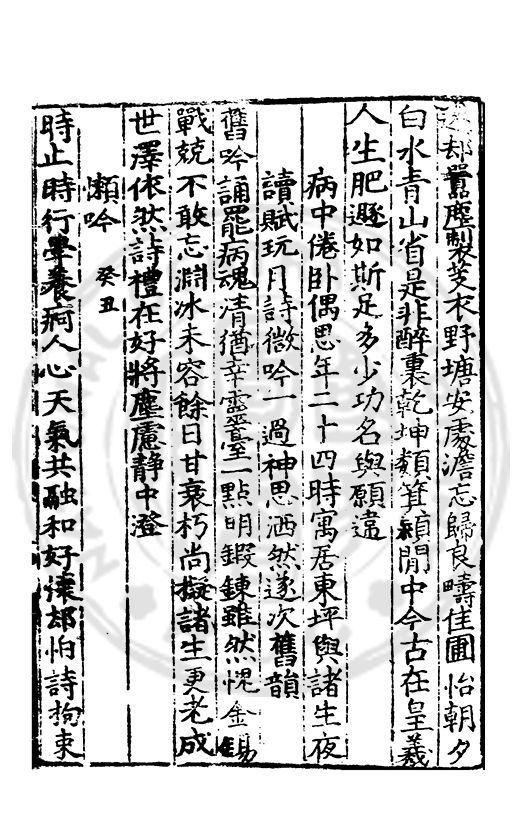 却囂塵製芰衣野塘安處澹忘歸良疇佳圃怡朝夕
白水青山省是非醉裏乾坤類箕潁閒中今古在皇羲
人生肥遯如斯足多少功名與願違
病中倦臥偶思年二十四時寓居東坪與諸生夜
讀賦玩月詩微吟一過神思洒然遂次舊韻
舊吟誦罷病魂淸猶幸靈臺一點明鍛鍊雖然愧金錫
戰兢不敢忘淵冰未容餘日甘衰朽尙擬諸生更老成
世澤依然詩禮在好將塵慮靜中澄
懶吟 癸丑
時止時行學養痾人心天氣共融和好懷却怕詩拘束